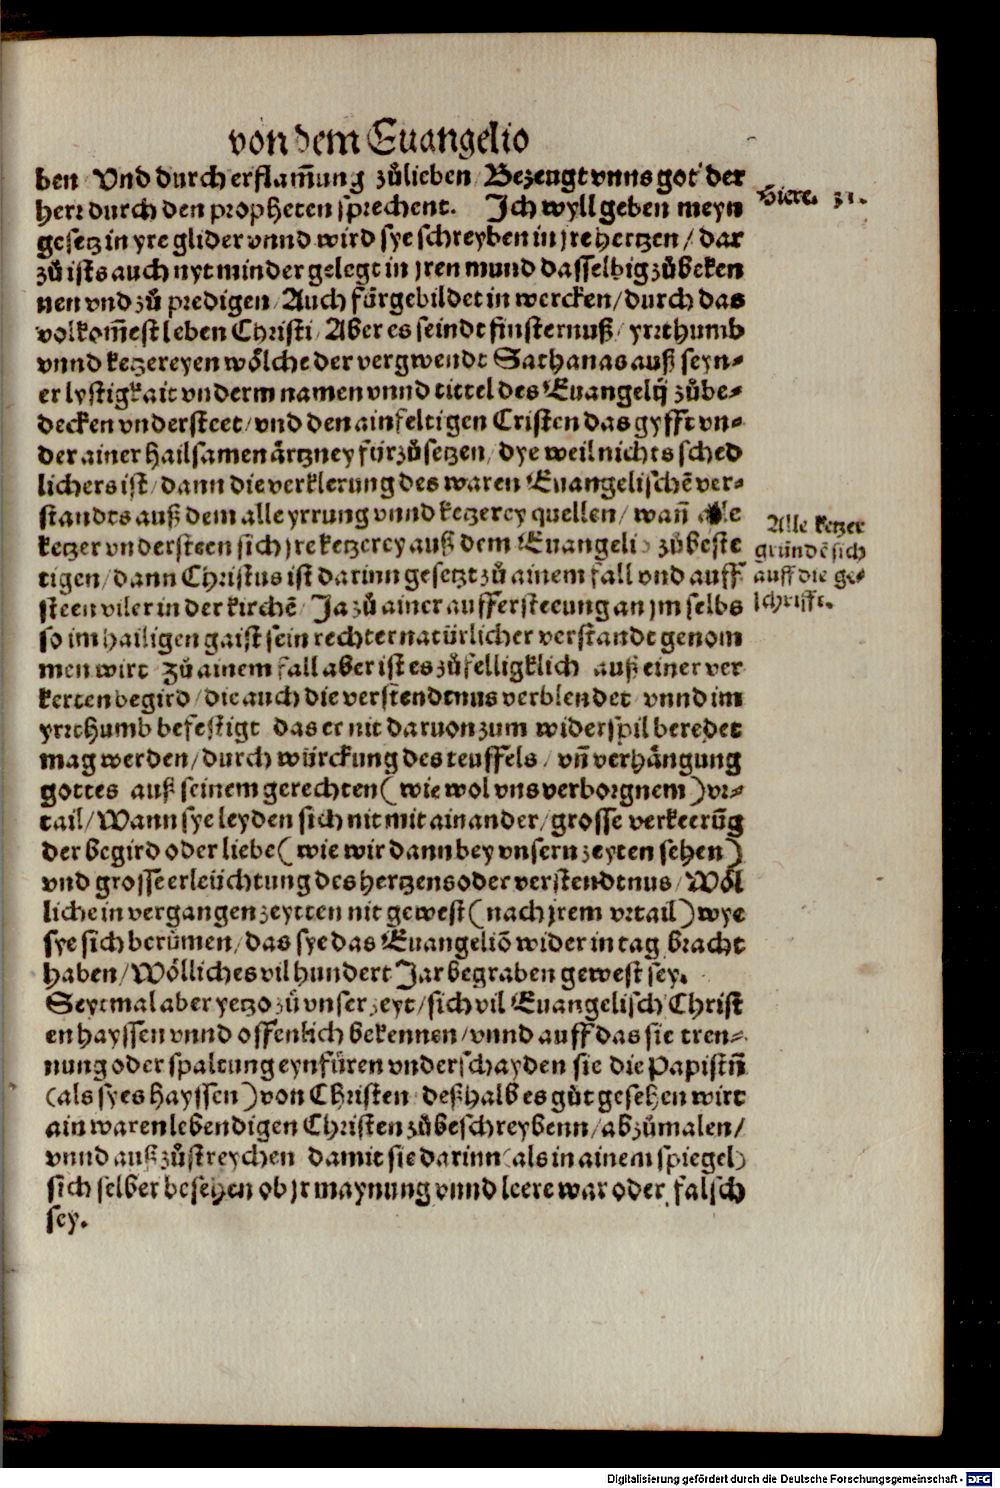 von dem Euangelio
ben Vnd durch erflam̃ung zůlieben Bezeugt vnns got der
herr durch den propheten sprechent. Ich wyll geben meyn
gesetz in yre glider vnnd wird sye schreyben in jre hertzen / dar
zů ists auch nyt minder gelegt in jren mund dasselbig zůbeken
nen vnd zů predigen / Auch fürgebildet in wercken / durch das
volkom̃est leben Christi / Aber es seindt finsternuß / yrrthumb
vnnd ketzereyen wölche der vergwendt Sathanas auß seyn⸗
er lystigkait vnderm namen vnnd tittel des Euangelij zůbe⸗
decken vndersteet / vnd den ainfeltigen Cristen das gyfft vn⸗
der ainer hailsamen ärtzney fürzůsetzen / dye weil nichts sched
lichers ist / dann die verklerung des waren Euangelischẽ ver⸗
standts auß dem alle yrrung vnnd ketzerey quellen / wañ alle
ketzer vndersteen sich jre ketzerey auß dem Euangelio zůbeste
tigen / dann Christus ist darinn gesetzt zů ainem fall vnd auff
steen viler in der kirchẽ / Ja zů ainer aufferstecung an jm selbs
so im hailigen gaist sein rechter natürlicher verstandt genom
men wirt zů ainem fall aber ist es zůfelligklich auß einer ver
kerten begird / die auch die verstendtnus verblendet vnnd im
yrrthumb befestigt das er nit daruon zum widerspil beredet
mag werden / durch würckung des teuffels / vñ verhängung
gottes auß seinem gerechten ( wie wol vns verborgnem ) vr⸗
tail / Wann sye leyden sich nit mit ainander / grosse verkeerũg
der begird oder liebe ( wie wir dann bey vnsern zeyten sehen )
vnd grosse erleüchtung des hertzens oder verstendtnus / Wöl
liche in vergangen zeytten nit gewest ( nach jrem vrtail ) wye
sye sich berümen / das sye das Euangeliõ wider in tag bracht
haben / Wölliches vil hundert Jar begraben gewest sey.
Seytmal aber yetzo zů vnser zeyt / sich vil Euangelisch Christ
en hayssen vnnd offenlich bekennen / vnnd auff das sie tren⸗
nung oder spaltung eynfüren vnderschayden sie die Papistñ
( als sye s hayssen ) von Christen deßhalb es gůt gesehen wirt
ain waren lebendigen Christen zůbeschreybenn / abzůmalen /
vnnd auß zůstreychen damit sie darinn ( als in ainem spiegel )
sich selber besehen ob jr maynung vnnd leere war oder falsch
sey.
Hiere. 31.
Alle ketzer
gründẽ sich
auff die ge⸗
schrifft.
Digitalisierung gefördert durch die Deutsche Forschungsgemeinschaft - DFG